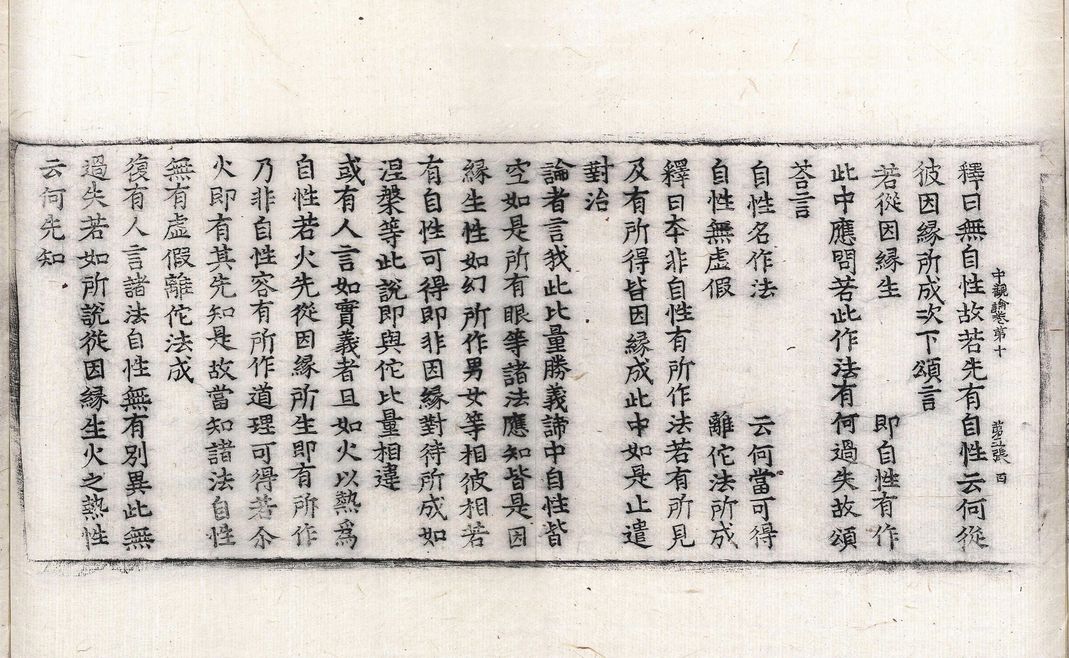 中觀論卷第十　第五張　四
釋曰無自性故若先有自性云何從
彼因緣所成次下頌言
若從因緣生　即自性有作
此中應問若此作法有何過失故頌
荅言
自性名作法　云何當可得
自性無虛假　離佗法所成
釋曰本非自性有所作法若有所見
及有所得皆因緣成此中如是止遣
對治
論者言我此比量勝義諦中自性皆
空如是所有眼等諸法應知皆是因
緣生性如幻所作男女等相彼相若
有自性可得即非因緣對待所成如
涅槃等此說即與佗比量相違
或有人言如實義者且如火以熱爲
自性若火先從因緣所生即有所作
乃非自性容有所作道理可得若尒
火即有其先知是故當知諸法自性
無有虛假離佗法成
復有人言諸法自性無有別異此無
過失若如所說從因緣生火之熱性
云何先知